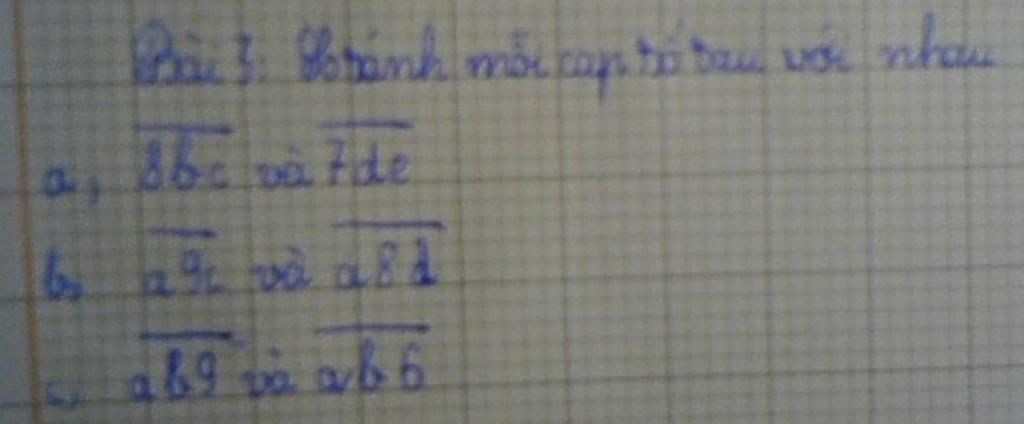 Bài 3. So sánh mỗi cặp số sau với nhau
a, 8bc và 7de
b, a9c và a8d
c, ab9 và ab6